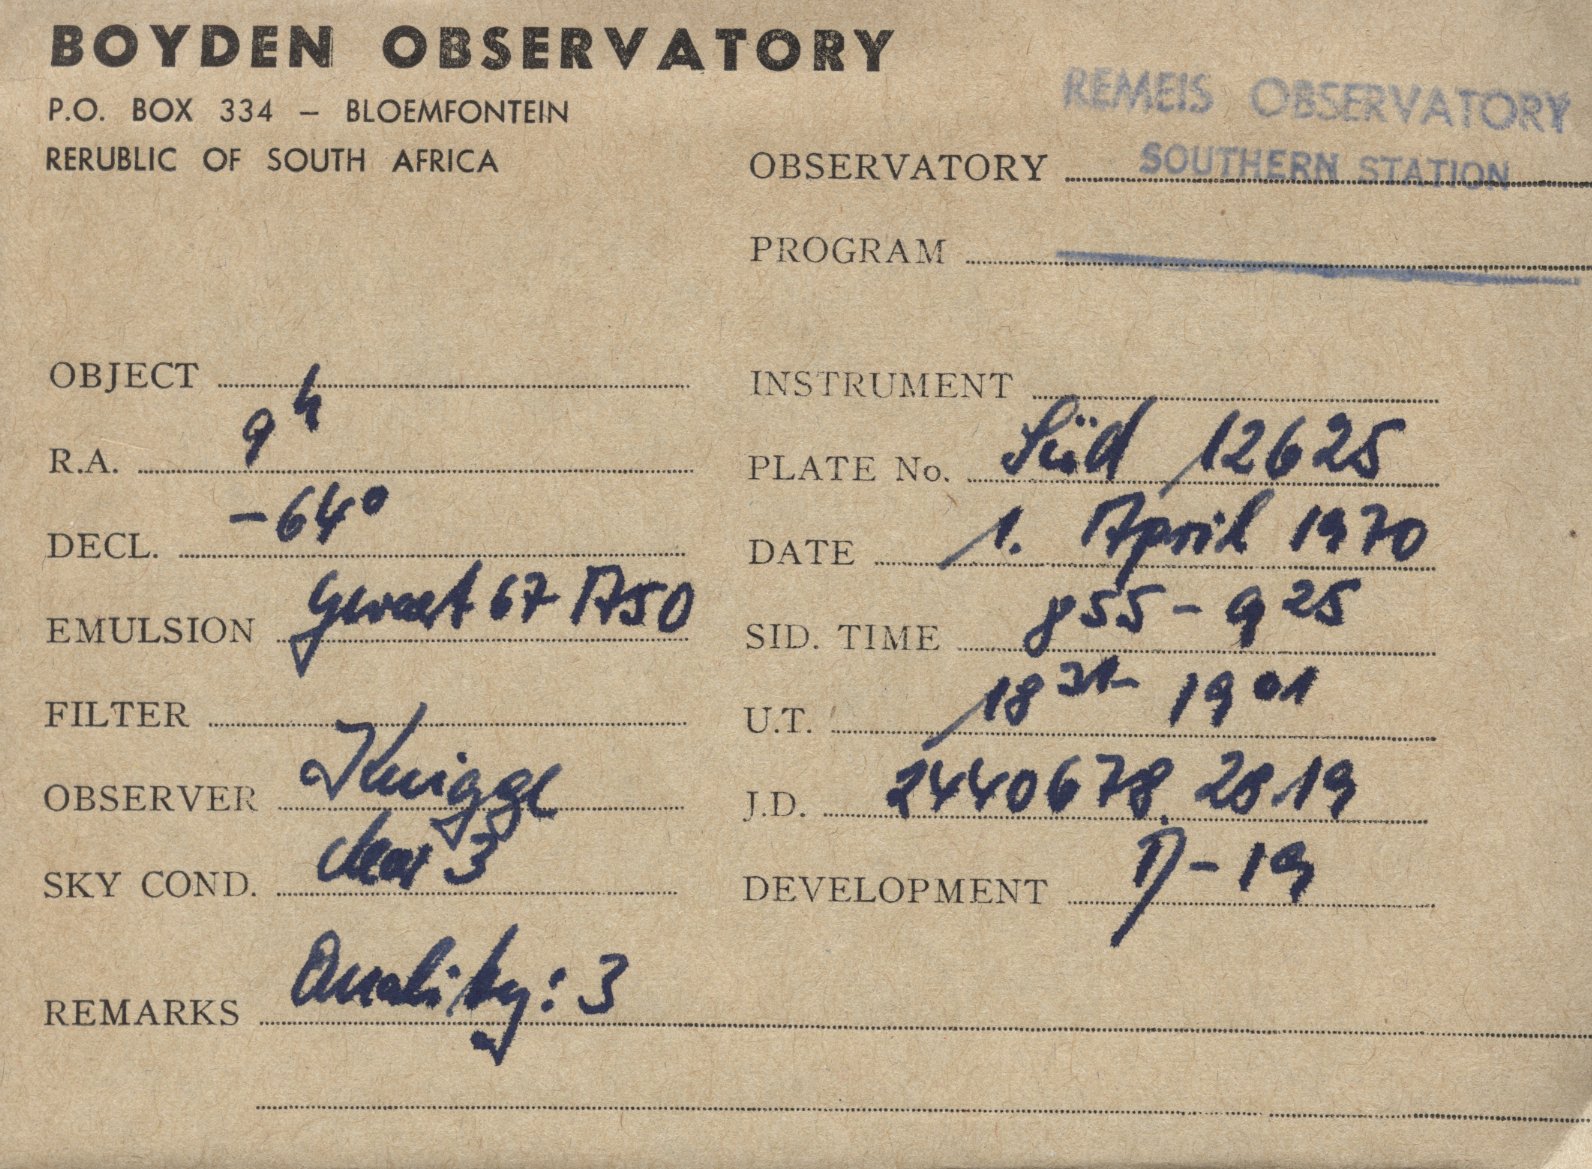 BOYDEN OBSERVATORY
P.O. BOX 334 – BLOEMFONTEIN
RERUBLIC OF SOUTH AFRICA
REMEIS OBSERVATORY
OBSERVATORY SOUTHERN STATION
PROGRAM
OBJECT
R.A. 9h
DECL. -64°
EMULSION Gevaert 67 A50
FILTER
OBSERVER Knigge
SKY COND. clear 3
INSTRUMENT
PLATE No. Süd 12625
DATE 1. April 1970
SID. TIME 8 55 - 9 25
U.T. 18 31 - 19 01
J.D. 2440678.2819
DEVELOPMENT D-19
REMARKS Quality: 3